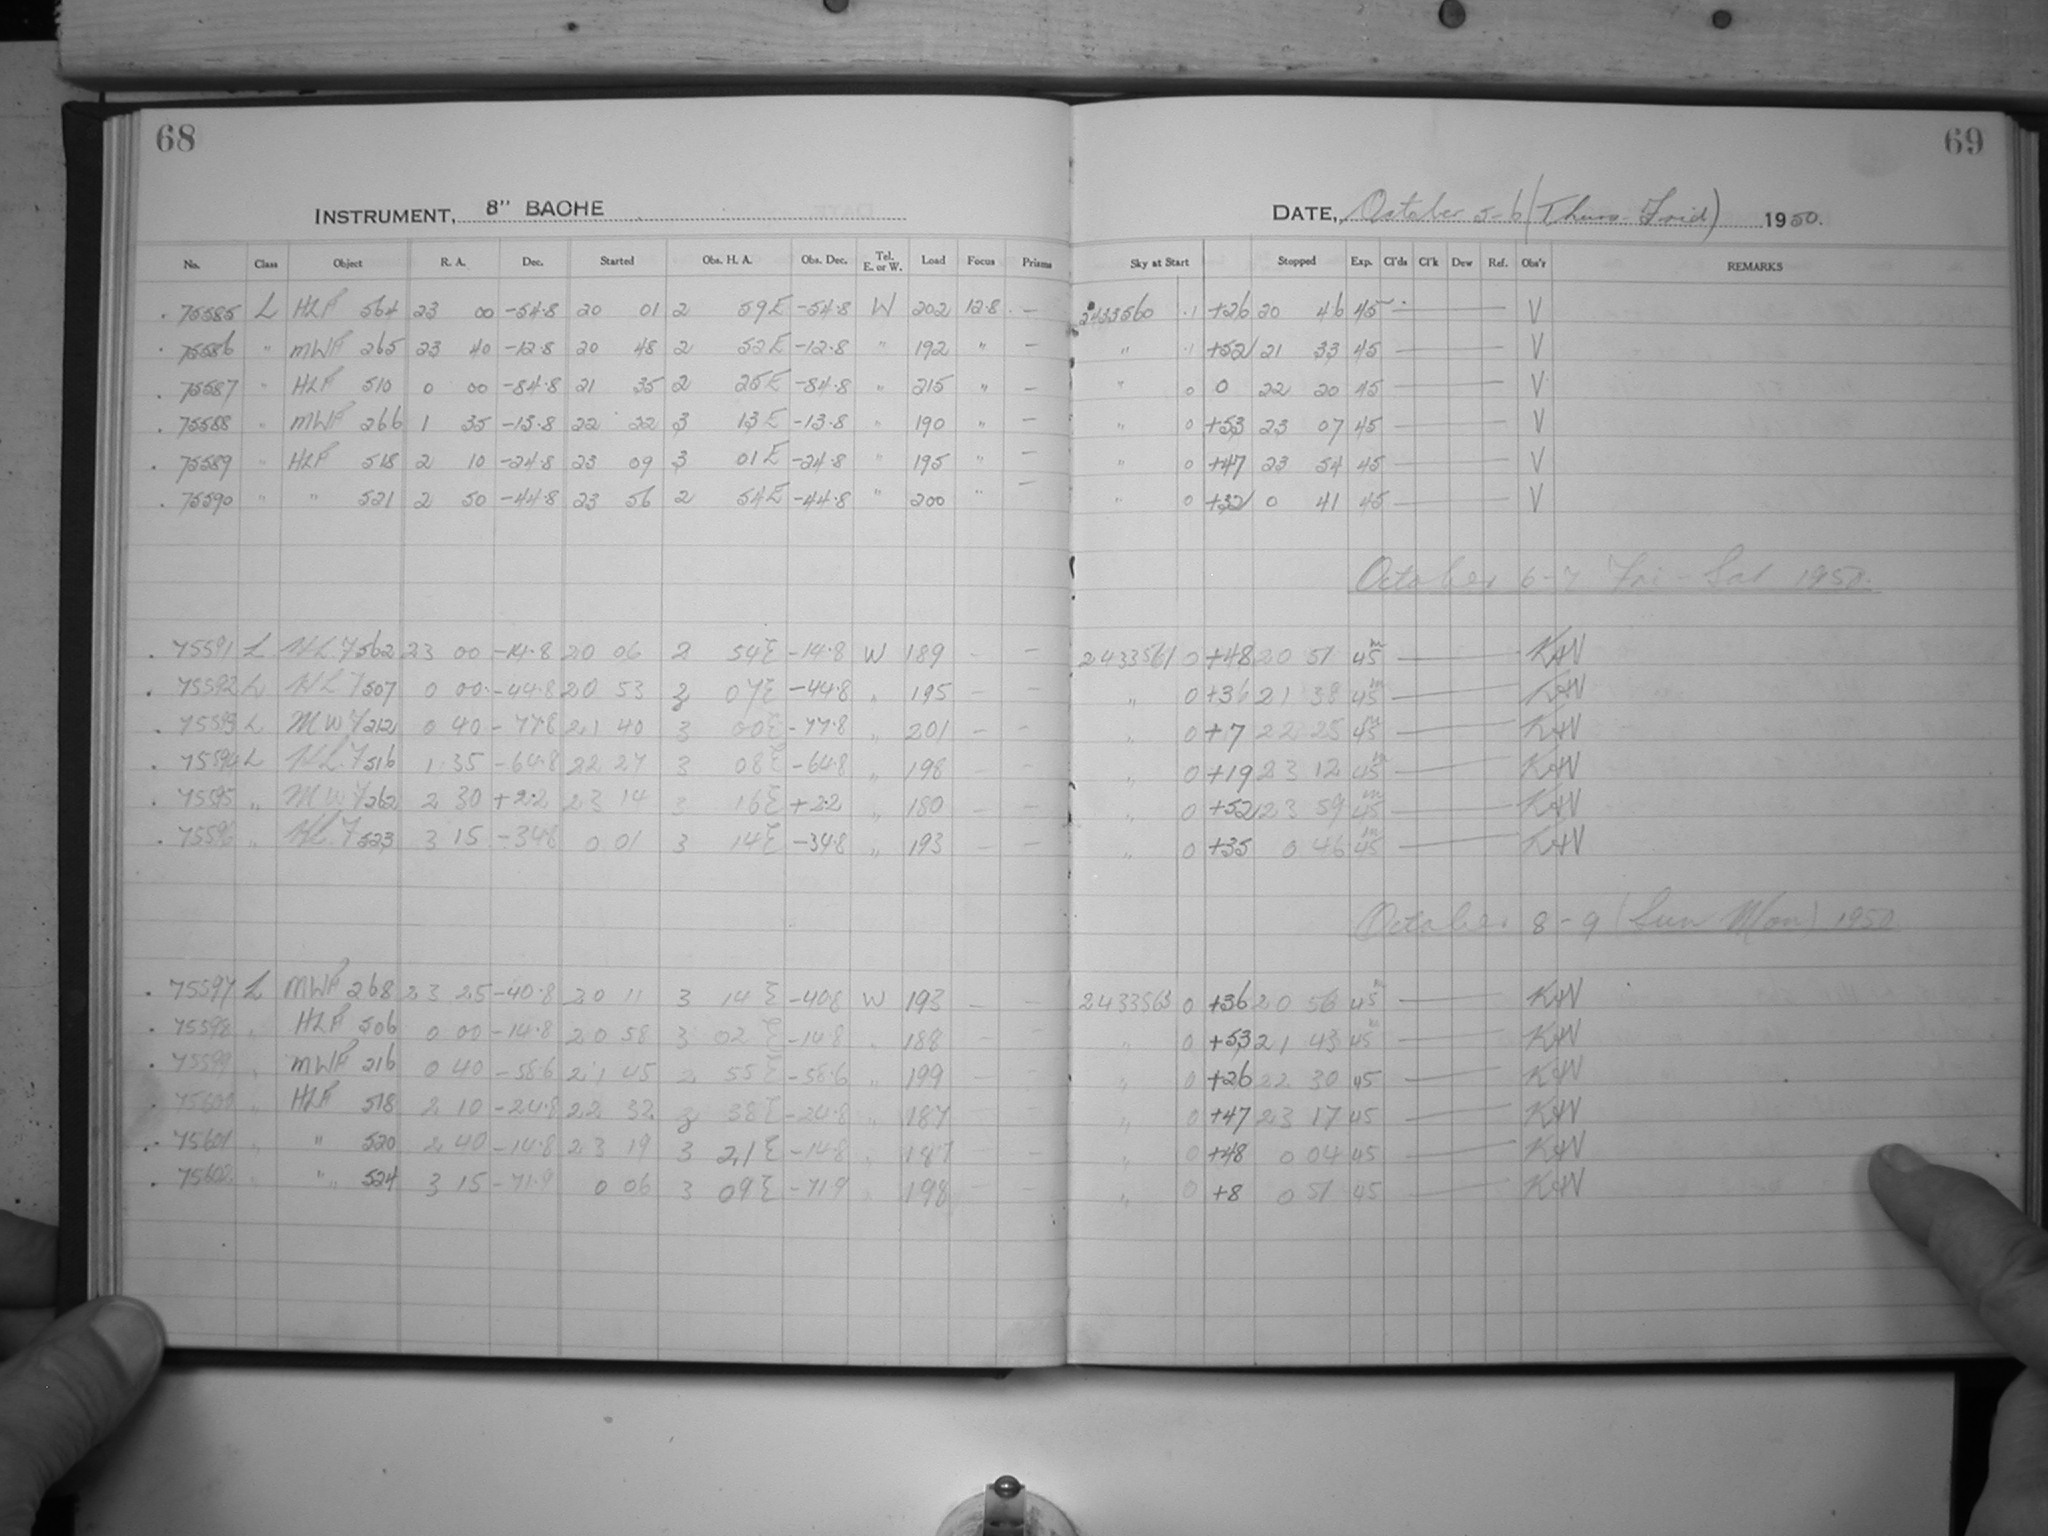 68
69
INSTRUMENT, 8" BACHE
DATE, October 5-6 (Thurs-Frid) 1950.
No. Class Object R. A. Dec. Started Obs. H. A. Obs. Dec. Tel. E. or W. Load Focus Prisms Sky at Start Stopped Exp. Cl'ds Cl'k Dew Ref. Obs'r REMARKS
75585 L HLF 564 23 00 -54.8 20 01 2 59E -54.8 W 202 12.8 - 2433560 .1 +26 20 46 45 V
75586 " MWF 265 23 40 -12.8 20 48 2 52E -12.8 " 192 " - " .1 +52 21 33 45 V
75587 " HLF 510 0 00 -84.8 21 35 2 25E -84.8 " 215 " - " 0 0 22 20 45 V
75588 " MWF 266 1 35 -13.8 22 22 3 13E -13.8 " 190 " - " 0 +53 23 07 45 V
75589 " HLF 518 2 10 -24.8 23 09 3 01E -24.8 " 195 " - " 0 +47 23 54 45 V
75590 " " 521 2 50 -44.8 23 56 2 54E -44.8 " 200 " - " 0 +32 0 41 45 V
October 6-7 Fri-Sat 1950.
75591 L HLF 562 23 00 -14.8 20 06 2 54E -14.8 W 189 - - 2433561 0 +48 20 51 45m KAV
75592 L HLF 507 0 00 -44.8 20 53 3 07E -44.8 " 195 - - " 0 +36 21 38 45m KAV
75593 L MWF 212 0 40 -77.8 21 40 3 00E -77.8 " 201 - - " 0 +7 22 25 45m KAV
75594 L HLF 516 1 35 -64.8 22 27 3 08E -64.8 " 198 - - " 0 +19 23 12 45m KAV
75595 " MWF 262 2 30 +2.2 23 14 3 16E +2.2 " 180 - - " 0 +52 23 59 45m KAV
75596 " HLF 523 3 15 -34.8 0 01 3 14E -34.8 " 193 - - " 0 +35 0 46 45m KAV
October 8-9 (Sun Mon) 1950
75597 L MWF 268 23 25 -40.8 20 11 3 14E -40.8 W 193 - - 2433563 0 +36 20 56 45m KAV
75598 " HLF 506 0 00 -14.8 20 58 3 02E -14.8 " 188 - - " 0 +53 21 43 45m KAV
75599 " MWF 216 0 40 -58.6 21 45 2 55E -58.6 " 199 - - " 0 +26 22 30 45 KAV
75600 " HLF 518 2 10 -24.8 22 32 3 38E -24.8 " 187 - - " 0 +47 23 17 45 KAV
75601 " " 520 2 40 -14.8 23 19 3 21E -14.8 " 187 - - " 0 +48 0 04 45 KAV
75602 " " 524 3 15 -71.9 0 06 3 09E -71.9 " 198 - - " 0 +8 0 51 45 KAV